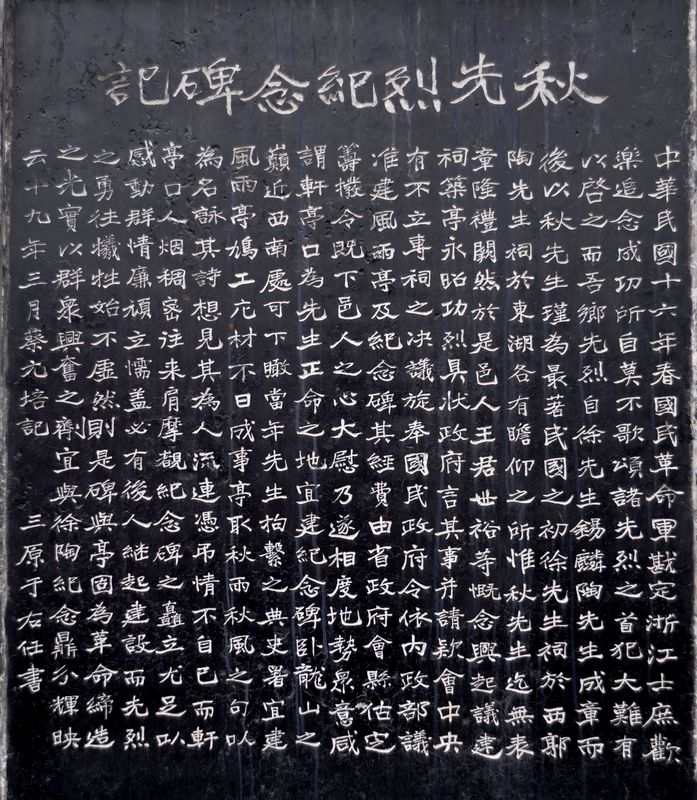 秋先烈紀念碑記
中華民國十六年春國民革命軍戡定浙江士庶歡
樂追念成功所自莫不歌頌諸先烈之首犯大難有
以啓之而吾鄉先烈自徐先生錫麟陶先生成章而
後以秋先生瑾為最著民國之初徐先生祠於西郭
陶先生祠於東湖各有瞻仰之所惟秋先生迄無表
章隆禮闕然於是邑人王君世裕等慨念興起議建
祠築亭永昭功烈具狀政府言其事并請欵會中央
有不立專祠之决議旋奉國民政府令依内政部議
准建風雨亭及紀念碑其經費由省政府會縣估定
籌撥令既下邑人之心大慰乃遂相度地勢眾意咸
謂軒亭口為先生正命之地宜建紀念碑卧龍山之
巔近西南處可下瞰當年先生拘繫之典史署宜建
風雨亭鳩工庀材不日成事亭取秋雨秋風之句以
為名詠其詩想見其為人流連憑弔情不自已而軒
亭口人烟稠密往来肩摩觀紀念碑之矗立尤足以
感動群情廉頑立懦盖必有後人继起建設而先烈
之勇往犧牲始不虛然則是碑與亭固為革命締造
之光實以群衆興奮之劑宜與徐陶紀念鼎分輝映
云十九年三月蔡元培記 三原于右任書